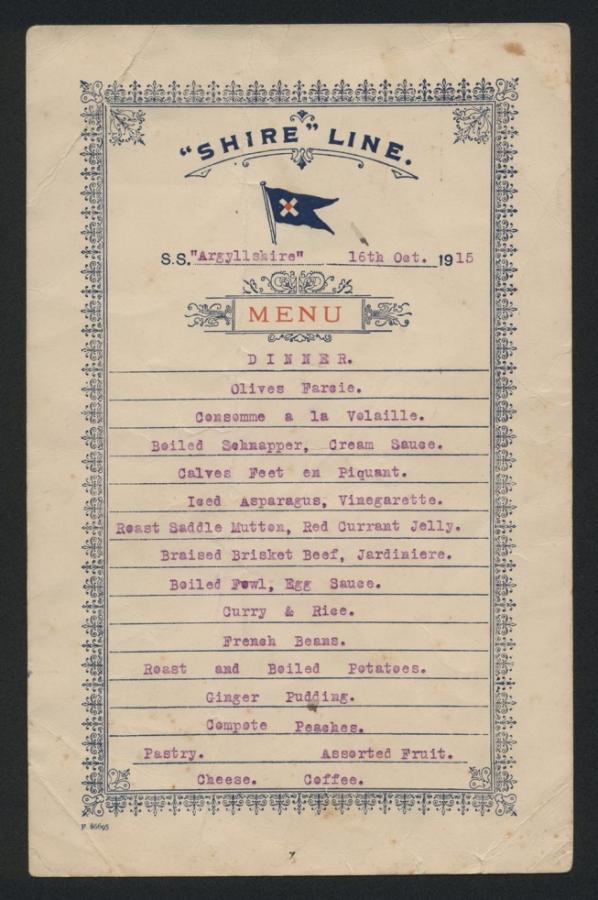 "SHIRE" LINE.
S.S. "Argyllshire" 16th Oct. 1915
MENU
DINNER.
Olives Farcie.
Consomme a la Volaille.
Boiled Schnapper, Cream Sauce.
Calves Feet en Piquant.
Iced Asparagus, Vinegarette.
Roast Saddle Mutton, Red Currant Jelly.
Braised Brisket Beef, Jardiniere.
Boiled Fowl, Egg Sauce.
Curry & Rice.
French Beans.
Roast and Boiled Potatoes.
Ginger Pudding.
Compote Peaches.
Pastry. Assorted Fruit.
Cheese. Coffee.
F 86695